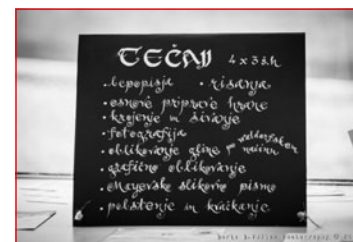 TEČAJ 4 x 3 š.h
• lepopisja • risanja
• osnove priprave hrane
• krojenje in šivanje
• fotografija
• oblikovanje gline po waldorfskem načinu
• grafično oblikovanje
• mayevske slikovno pismo
• polstenje in kvačkanje